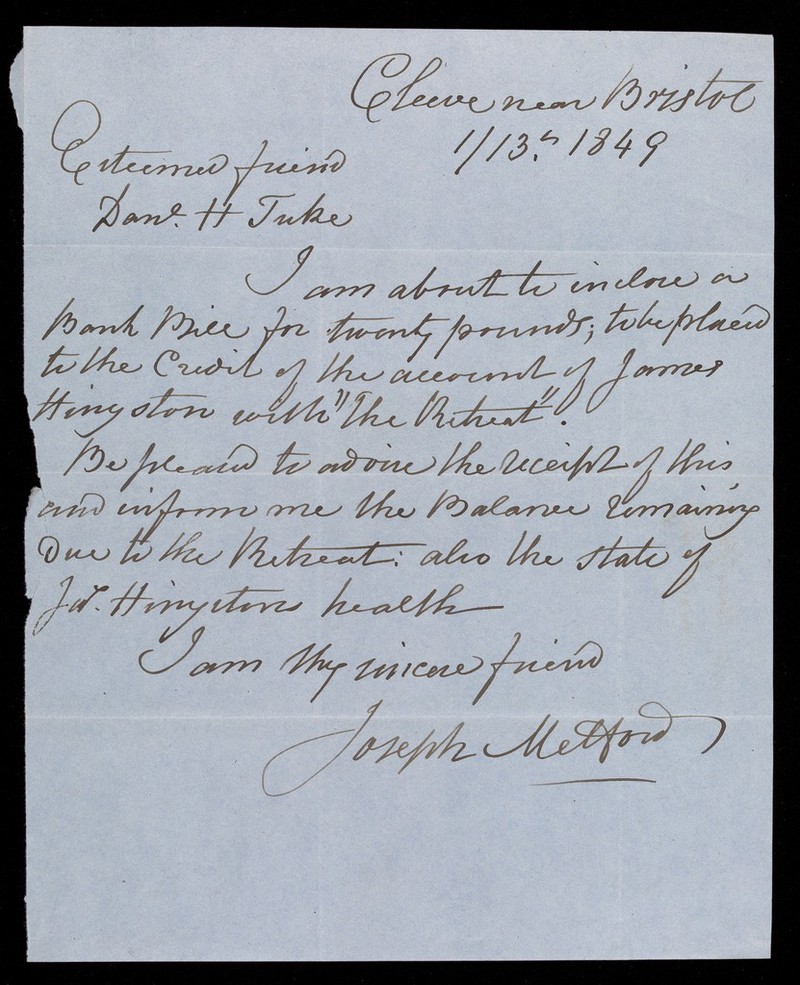 Cleeve near Bristol
1/13.th 1849
Esteemed friend
Danl. H Tuke
I am about to inclose a
Bank Bill for twenty pounds; to be placed
to the Credit of the account of James
Hingston with "The Retreat".
Be pleased to advise the receipt of this
and inform me the Balance remaining
Due to the Retreat: also the state of
Jas. Hingstons health
I am thy sincere friend
Joseph Metford